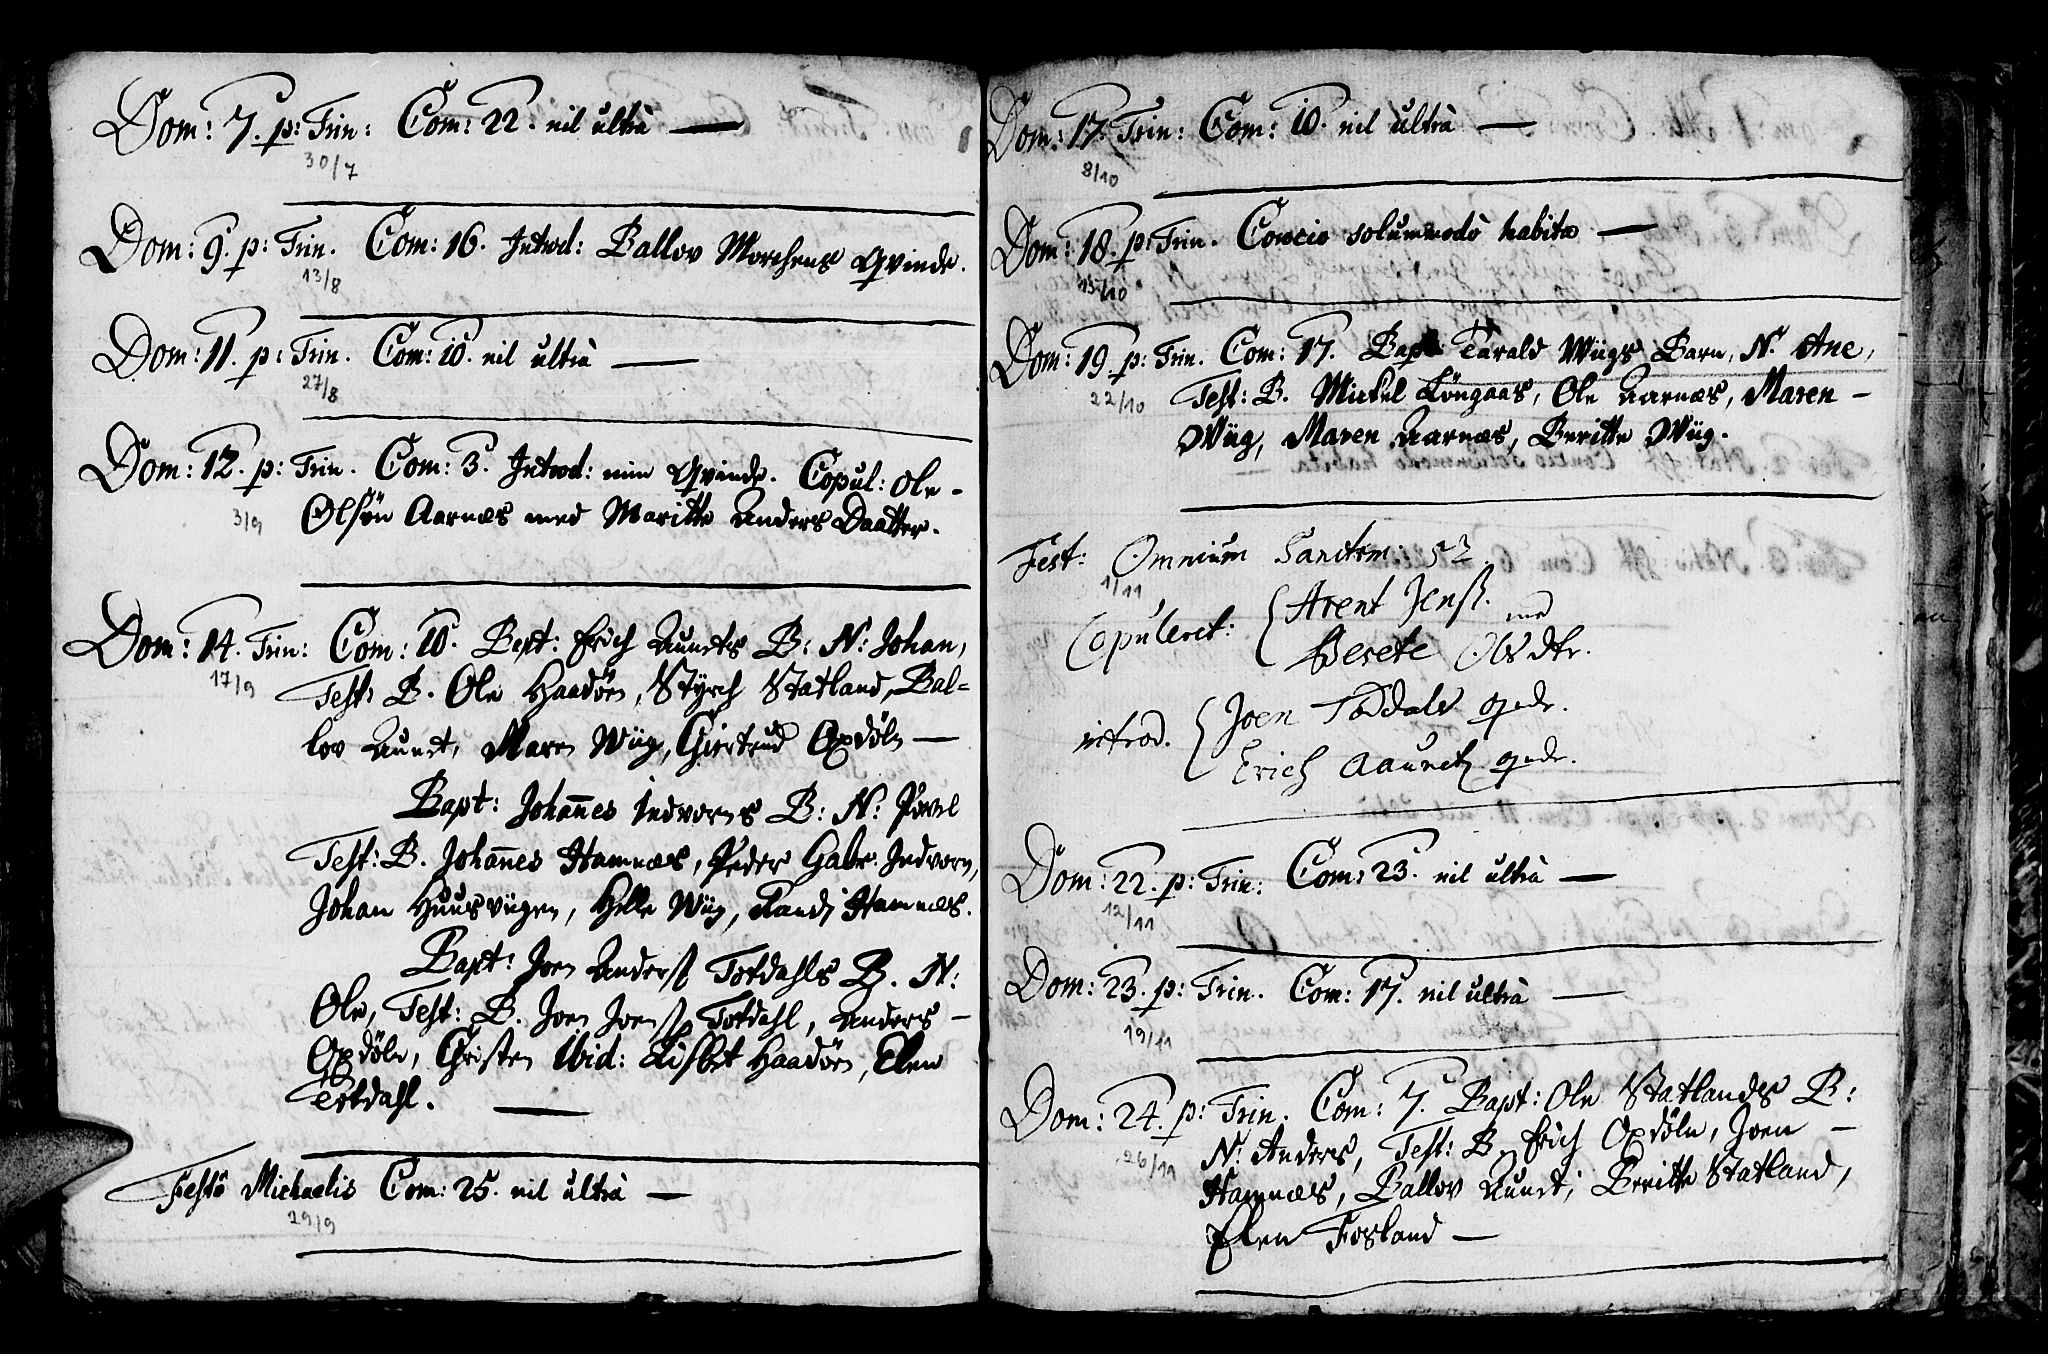 Dom: 7. p: Trin: Com: 22. nil ultrà —
30/7
Dom: 9. p: Trin. Com: 16. Introd: Ballov Morchens Qvinde.
13/8
Dom: 11. p: Trin. Com: 10. nil ultrà —
27/8
Dom: 12. p: Trin. Com: 3. Introd: min Qvinde. Copul: Ole
3/9
Olsøn Aarnæs med Maritte Anders Daatter.
Dom: 14. Trin: Com: 10. Bapt: Erich Aunets B: N: Johan,
17/9
Test: B. Ole Haadøen, Styrch Statland, Bal=
lov Aunet, Maren Wiig, Giertrud Opdøln —
Bapt: Johan̄es Indvorns B: N: Povel
Test: B. Johan̄es Hamnæs, Peder Gabr. Indvorn,
Johan Huusviigen, Helle Wiig, Randj Hamnæs.
Bapt: Joen Anderss Totdahls B. N:
Ole, Test: B. Joen Joenss Totdahl, Anders —
Opdøln, Christen Ibid: Lisbet Haadøen, Elen
Totdahl. —
Festo Michaelis Com: 25. nil ultrà —
29/9
Dom: 17. Trin: Com: 10. nil ultrà —
8/10
Dom: 18. p: Trin. Concio solummodo habita —
15/10
Dom: 19. p: Trin. Com: 17. Bapt Tarald Wiigs Barn, N. Ane,
22/10
Test: B. Mickel Longaas, Ole Aarnæs, Maren —
Wiig, Maren Aarnæs, Beritte Wiig.
Fest: Omnium Sanctrm: 52
1/11
Copuleret: { Arent Jenss. med
Berete Olsdtr.
introd. { Joen Toddals qvde.
Erich Aaunetz qvde.
Dom: 22. p: Trin: Com: 23. nil ultrà —
12/11
Dom: 23. p: Trin. Com: 17. nil ultrà —
19/11
Dom: 24. p: Trin. Com: 7. Bapt: Ole Statlandes B:
26/11
N: Anders, Test: B. Erich Opdøln, Joen —
Hamnæs, Ballov Aunet, Beritte Statland,
Elen Fosland —